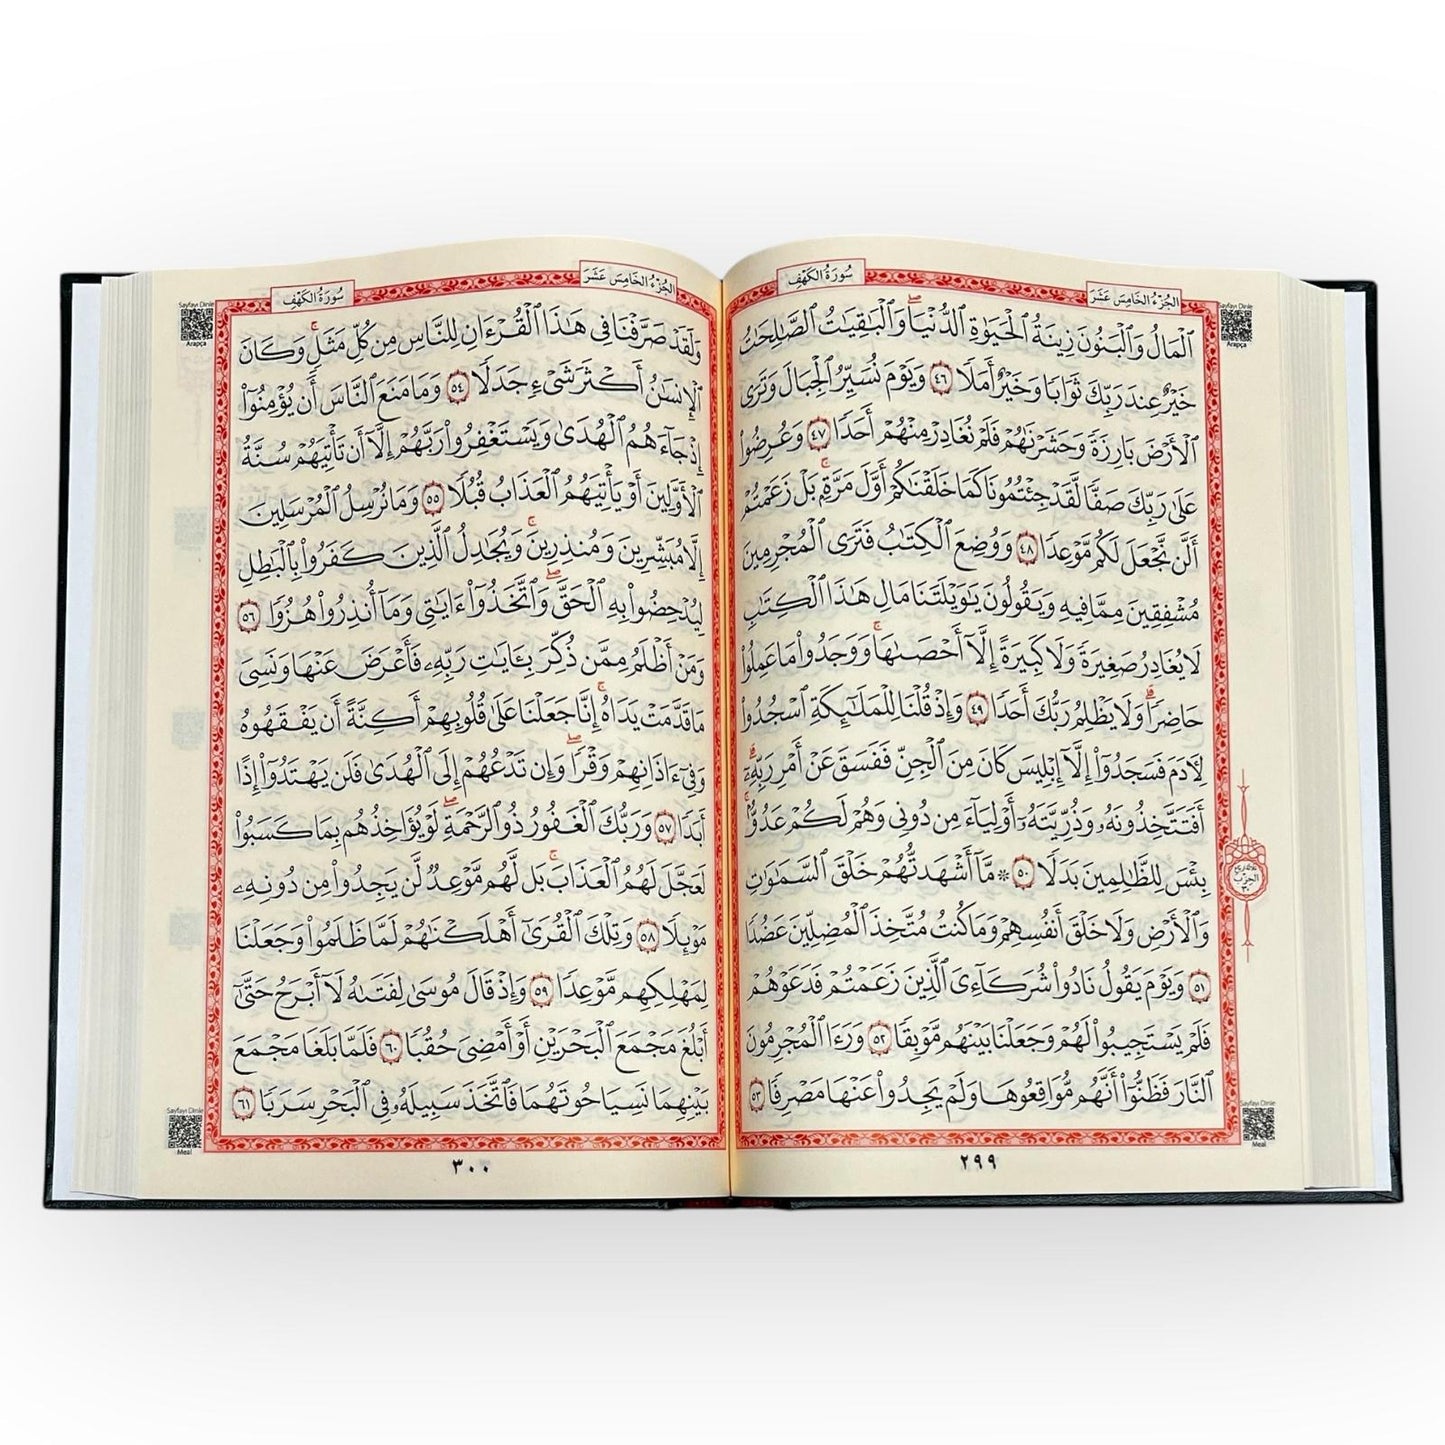 الجُزْءُ الخَامِسَ عَشَرَ
سُورَةُ الكَهْفِ
Sayfayı Dinle
Arapça
ٱلْمَالُ وَٱلْبَنُونَ زِينَةُ ٱلْحَيَوٰةِ ٱلدُّنْيَا ۖ وَٱلْبَٰقِيَٰتُ ٱلصَّٰلِحَٰتُ
خَيْرٌ عِندَ رَبِّكَ ثَوَابًا وَخَيْرٌ أَمَلًا ٤٦ وَيَوْمَ نُسَيِّرُ ٱلْجِبَالَ وَتَرَى
ٱلْأَرْضَ بَارِزَةً وَحَشَرْنَٰهُمْ فَلَمْ نُغَادِرْ مِنْهُمْ أَحَدًا ٤٧ وَعُرِضُوا۟
عَلَىٰ رَبِّكَ صَفًّا لَّقَدْ جِئْتُمُونَا كَمَا خَلَقْنَٰكُمْ أَوَّلَ مَرَّةٍۭ ۚ بَلْ زَعَمْتُمْ
أَلَّن نَّجْعَلَ لَكُم مَّوْعِدًا ٤٨ وَوُضِعَ ٱلْكِتَٰبُ فَتَرَى ٱلْمُجْرِمِينَ
مُشْفِقِينَ مِمَّا فِيهِ وَيَقُولُونَ يَٰوَيْلَتَنَا مَالِ هَٰذَا ٱلْكِتَٰبِ
لَا يُغَادِرُ صَغِيرَةً وَلَا كَبِيرَةً إِلَّآ أَحْصَىٰهَا ۚ وَوَجَدُوا۟ مَا عَمِلُوا۟
حَاضِرًا ۗ وَلَا يَظْلِمُ رَبُّكَ أَحَدًا ٤٩ وَإِذْ قُلْنَا لِلْمَلَٰٓئِكَةِ ٱسْجُدُوا۟
لِءَادَمَ فَسَجَدُوٓا۟ إِلَّآ إِبْلِيسَ كَانَ مِنَ ٱلْجِنِّ فَفَسَقَ عَنْ أَمْرِ رَبِّهِۦٓ ۗ
أَفَتَتَّخِذُونَهُۥ وَذُرِّيَّتَهُۥٓ أَوْلِيَآءَ مِن دُونِى وَهُمْ لَكُمْ عَدُوٌّۢ ۚ
بِئْسَ لِلظَّٰلِمِينَ بَدَلًا ٥٠ ۞ مَّآ أَشْهَدتُّهُمْ خَلْقَ ٱلسَّمَٰوَٰتِ
وَٱلْأَرْضِ وَلَا خَلْقَ أَنفُسِهِمْ وَمَا كُنتُ مُتَّخِذَ ٱلْمُضِلِّينَ عَضُدًا
٥١ وَيَوْمَ يَقُولُ نَادُوا۟ شُرَكَآءِىَ ٱلَّذِينَ زَعَمْتُمْ فَدَعَوْهُمْ
فَلَمْ يَسْتَجِيبُوا۟ لَهُمْ وَجَعَلْنَا بَيْنَهُم مَّوْبِقًا ٥٢ وَرَءَا ٱلْمُجْرِمُونَ
ٱلنَّارَ فَظَنُّوٓا۟ أَنَّهُم مُّوَاقِعُوهَا وَلَمْ يَجِدُوا۟ عَنْهَا مَصْرِفًا ٥٣
الحِزْبُ
٣٠
Sayfayı Dinle
Meal
٢٩٩
الجُزْءُ الخَامِسَ عَشَرَ
سُورَةُ الكَهْفِ
Sayfayı Dinle
Arapça
وَلَقَدْ صَرَّفْنَا فِى هَٰذَا ٱلْقُرْءَانِ لِلنَّاسِ مِن كُلِّ مَثَلٍ ۚ وَكَانَ
ٱلْإِنسَٰنُ أَكْثَرَ شَىْءٍ جَدَلًا ٥٤ وَمَا مَنَعَ ٱلنَّاسَ أَن يُؤْمِنُوٓا۟
إِذْ جَآءَهُمُ ٱلْهُدَىٰ وَيَسْتَغْفِرُوا۟ رَبَّهُمْ إِلَّآ أَن تَأْتِيَهُمْ سُنَّةُ
ٱلْأَوَّلِينَ أَوْ يَأْتِيَهُمُ ٱلْعَذَابُ قُبُلًا ٥٥ وَمَا نُرْسِلُ ٱلْمُرْسَلِينَ
إِلَّا مُبَشِّرِينَ وَمُنذِرِينَ ۚ وَيُجَٰدِلُ ٱلَّذِينَ كَفَرُوا۟ بِٱلْبَٰطِلِ
لِيُدْحِضُوا۟ بِهِ ٱلْحَقَّ ۖ وَٱتَّخَذُوٓا۟ ءَايَٰتِى وَمَآ أُنذِرُوا۟ هُزُوًا ٥٦
وَمَنْ أَظْلَمُ مِمَّن ذُكِّرَ بِـَٔايَٰتِ رَبِّهِۦ فَأَعْرَضَ عَنْهَا وَنَسِىَ
مَا قَدَّمَتْ يَدَاهُ ۚ إِنَّا جَعَلْنَا عَلَىٰ قُلُوبِهِمْ أَكِنَّةً أَن يَفْقَهُوهُ
وَفِىٓ ءَاذَانِهِمْ وَقْرًا ۖ وَإِن تَدْعُهُمْ إِلَى ٱلْهُدَىٰ فَلَن يَهْتَدُوٓا۟ إِذًا
أَبَدًا ٥٧ وَرَبُّكَ ٱلْغَفُورُ ذُو ٱلرَّحْمَةِ ۖ لَوْ يُؤَاخِذُهُم بِمَا كَسَبُوا۟
لَعَجَّلَ لَهُمُ ٱلْعَذَابَ ۚ بَل لَّهُم مَّوْعِدٌ لَّن يَجِدُوا۟ مِن دُونِهِۦ
مَوْئِلًا ٥٨ وَتِلْكَ ٱلْقُرَىٰٓ أَهْلَكْنَٰهُمْ لَمَّا ظَلَمُوا۟ وَجَعَلْنَا
لِمَهْلِكِهِم مَّوْعِدًا ٥٩ وَإِذْ قَالَ مُوسَىٰ لِفَتَىٰهُ لَآ أَبْرَحُ حَتَّىٰٓ
أَبْلُغَ مَجْمَعَ ٱلْبَحْرَيْنِ أَوْ أَمْضِىَ حُقُبًا ٦٠ فَلَمَّا بَلَغَا مَجْمَعَ
بَيْنِهِمَا نَسِيَا حُوتَهُمَا فَٱتَّخَذَ سَبِيلَهُۥ فِى ٱلْبَحْرِ سَرَبًا ٦١
Sayfayı Dinle
Meal
٣٠٠